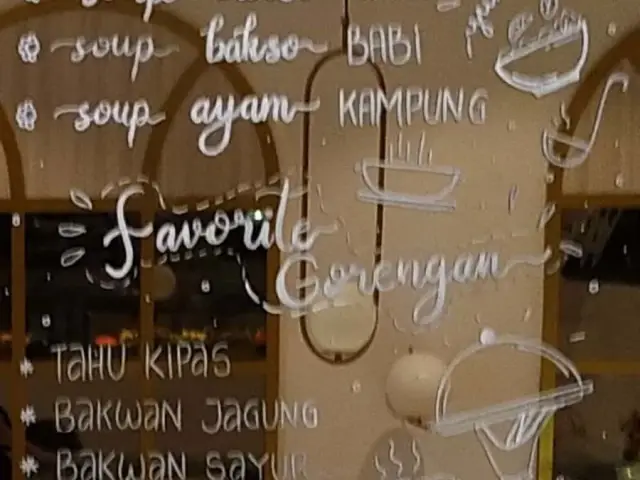 soup bakso BABI
soup ayam KAMPUNG
Favorite
Gorengan
TAHU KIPAS
BAKWAN JAGUNG
BAKWAN SAYUR